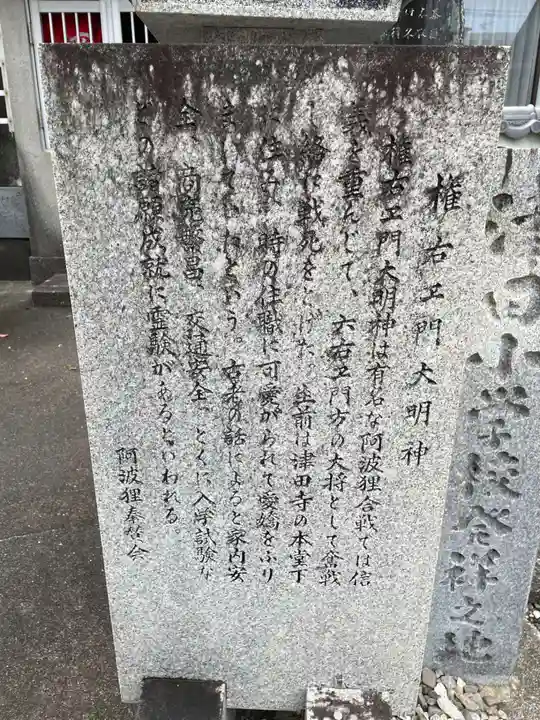 権右エ門大明神
権右エ門大明神は有名な阿波狸合戦では信
義を重んじて、六右エ門方の大将として奮戦
し終に戦死をとげた。生前は津田寺の本堂下
に住み、時の住職に可愛がられて愛嬌をふり
まいていたという。古老の話によると家内安
全、商売繁昌、交通安全、とくに入学試験な
どの諸願成就に霊験があるといわれる。
阿波狸奉賛会
津田小学校発祥之地